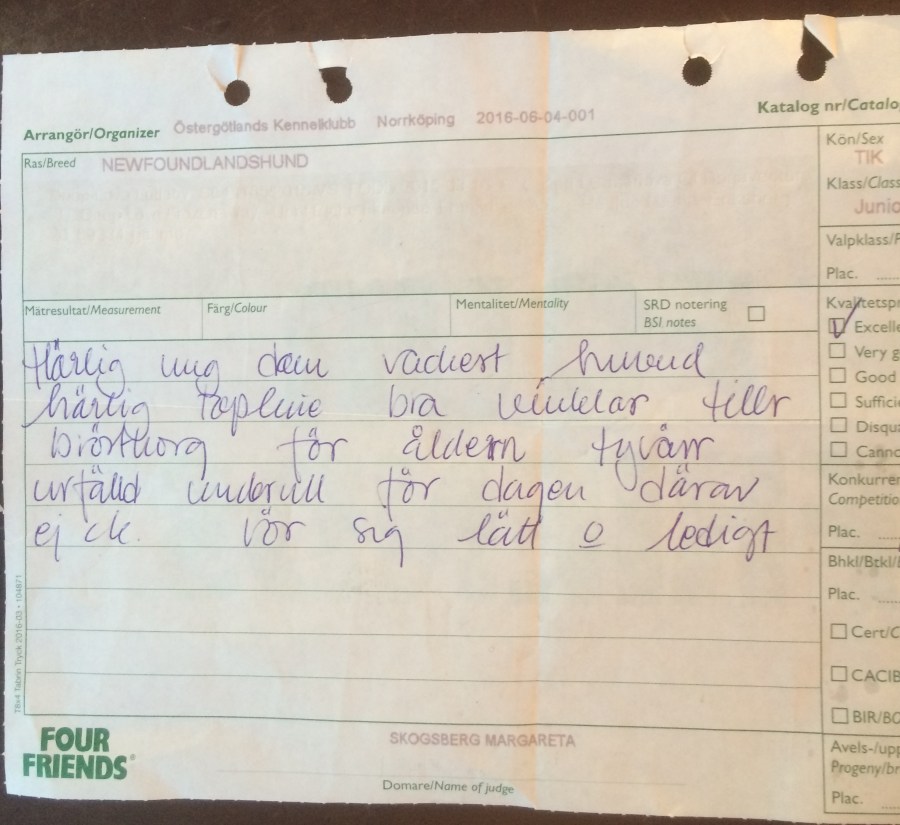 Arrangör/Organizer Östergötlands Kennelklubb Norrköping 2016-06-04-001 Katalog nr/Catalo
Ras/Breed NEWFOUNDLANDSHUND
Kön/Sex
TIK
Klass/Class
Junio
Valpklass/P
Plac. ....
Mätresultat/Measurement Färg/Colour Mentalitet/Mentality SRD notering
BSI notes
Kvalitetspr
Excelle
Very g
Good
Suffici
Disqu
Canno
Härlig ung dam vackert huvud
härlig topline bra vinklar tillr
bröstkorg för åldern tyvärr
urfälld underull för dagen därav
ej ck. rör sig lätt o ledigt
Konkurren
Competitio
Plac. ....
Bhkl/Btkl/
Plac. ....
Cert/C
CACIB
BIR/BO
Avels-/upp
Progeny/br
Plac. ....
T8x4 Tabrin Tryck 2016-03 • 104671
FOUR
FRIENDS®
SKOGSBERG MARGARETA
Domare/Name of judge